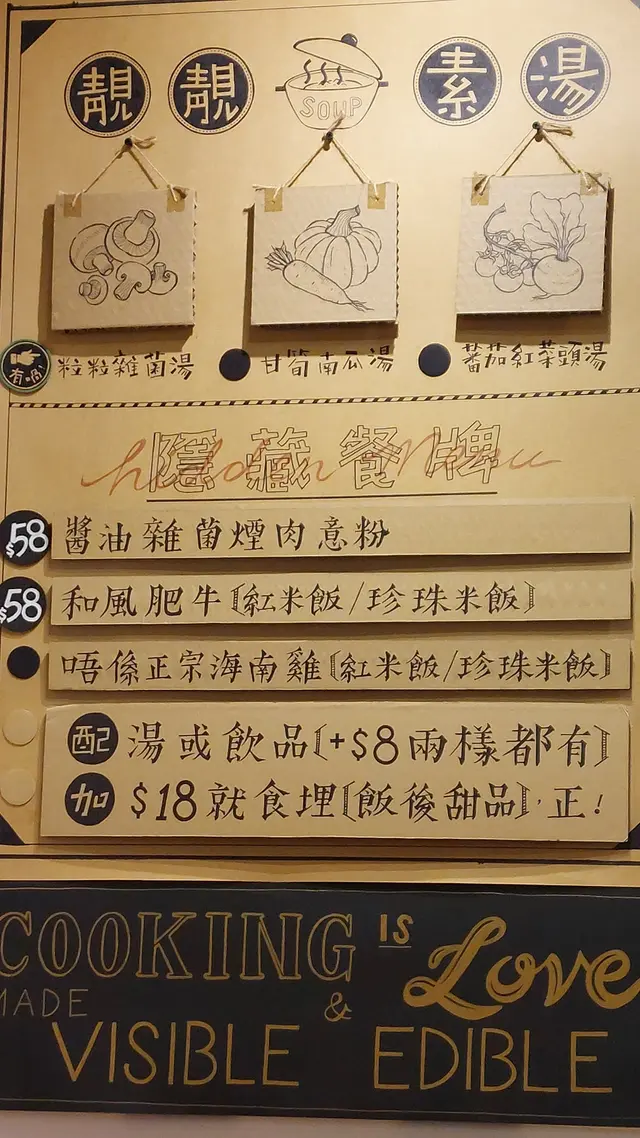 靚靚 SOUP 素湯
有喎 粒粒雜菌湯 甘筍南瓜湯 蕃茄紅菜頭湯
隱藏餐牌
hidden Menu
$58 醬油雜菌煙肉意粉
$58 和風肥牛〔紅米飯/珍珠米飯〕
唔係正宗海南雞〔紅米飯/珍珠米飯〕
配 湯或飲品〔+$8兩樣都有〕
加 $18就食埋〔飯後甜品〕,正!
COOKING IS Love
MADE VISIBLE & EDIBLE